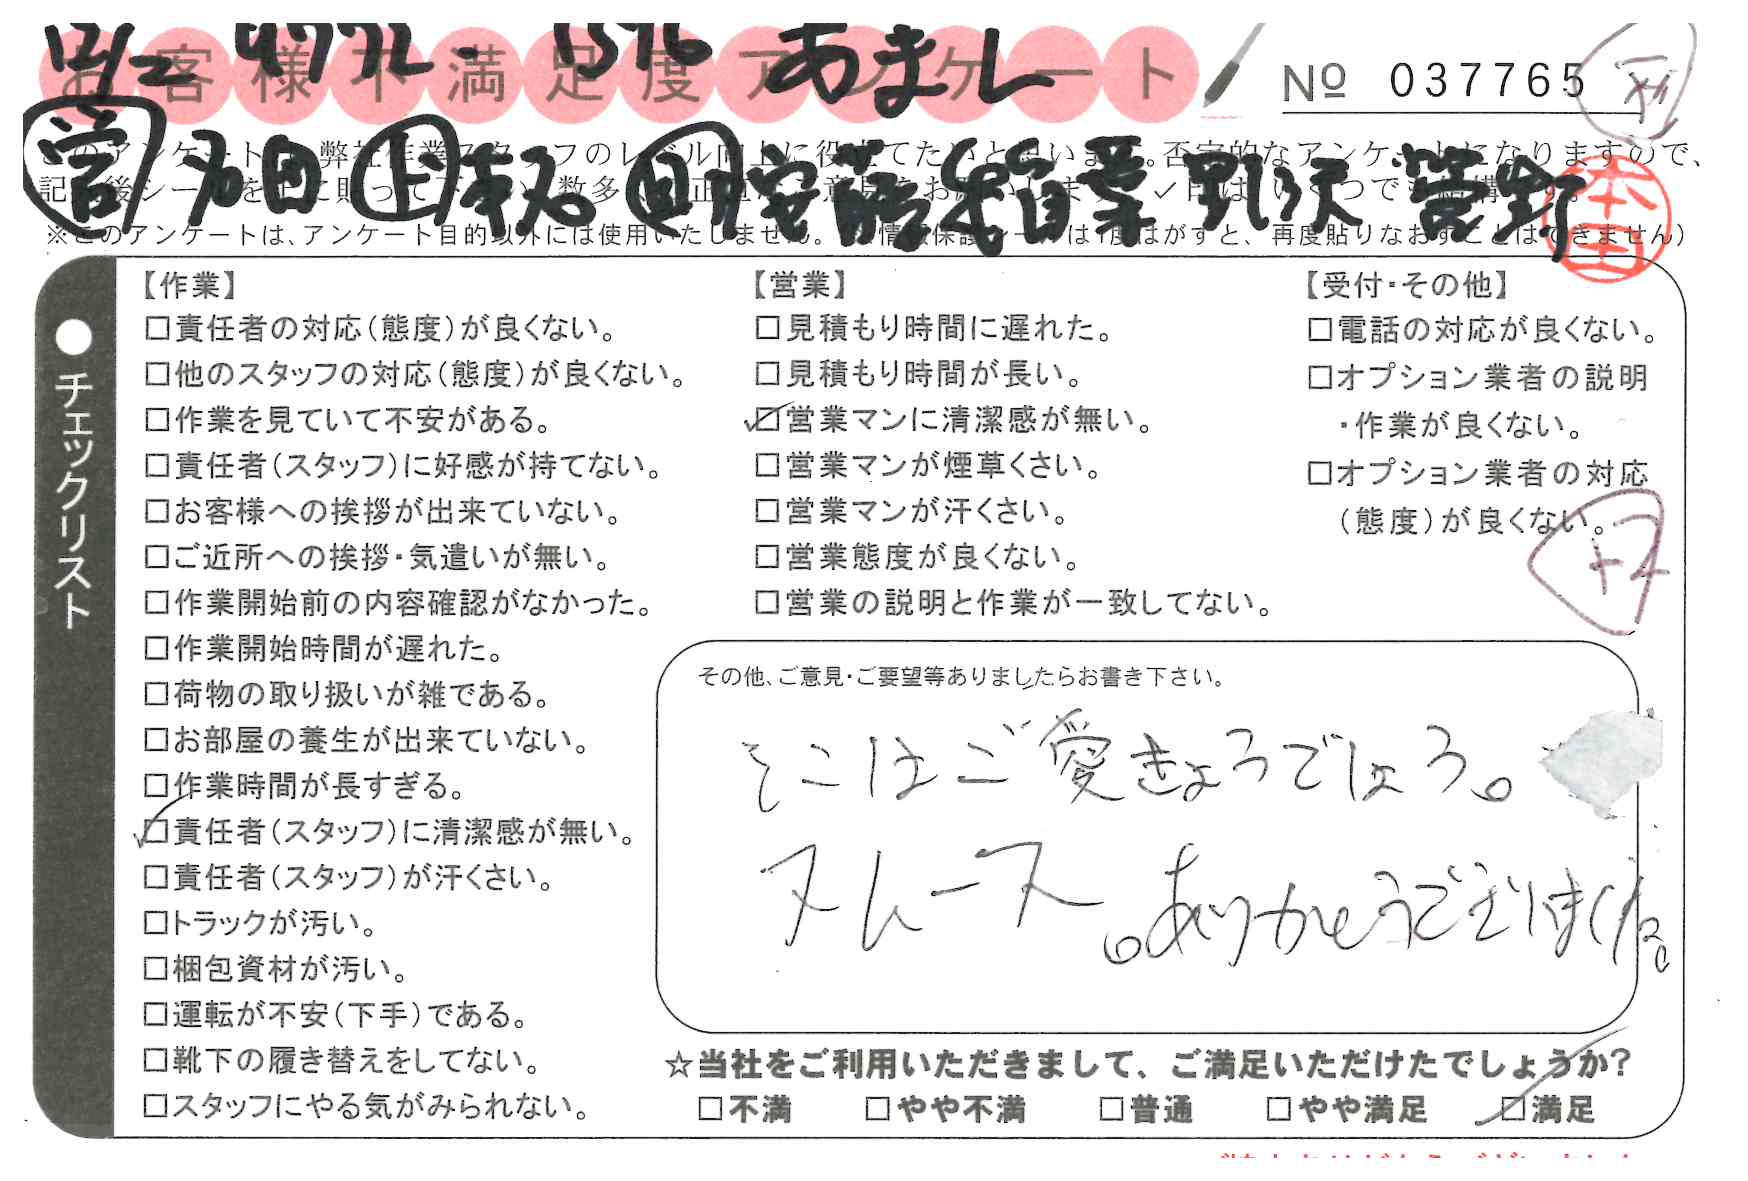 お客様不満足度アンケート
あまし
№ 037765
本田
※このアンケートは、アンケート目的以外には使用いたしません。
チェックリスト
【作業】
□責任者の対応（態度）が良くない。
□他のスタッフの対応（態度）が良くない。
□作業を見ていて不安がある。
□責任者（スタッフ）に好感が持てない。
□お客様への挨拶が出来ていない。
□ご近所への挨拶・気遣いが無い。
□作業開始前の内容確認がなかった。
□作業開始時間が遅れた。
□荷物の取り扱いが雑である。
□お部屋の養生が出来ていない。
□作業時間が長すぎる。
☑責任者（スタッフ）に清潔感が無い。
□責任者（スタッフ）が汗くさい。
□トラックが汚い。
□梱包資材が汚い。
□運転が不安（下手）である。
□靴下の履き替えをしてない。
□スタッフにやる気がみられない。
【営業】
□見積もり時間に遅れた。
□見積もり時間が長い。
☑営業マンに清潔感が無い。
□営業マンが煙草くさい。
□営業マンが汗くさい。
□営業態度が良くない。
□営業の説明と作業が一致してない。
【受付・その他】
□電話の対応が良くない。
□オプション業者の説明
・作業が良くない。
□オプション業者の対応
（態度）が良くない。
その他、ご意見・ご要望等ありましたらお書き下さい。
そこはご愛きょうでしょう。
スムース。ありがとうございました。
☆当社をご利用いただきまして、ご満足いただけたでしょうか?
□不満 □やや不満 □普通 □やや満足 ☑満足